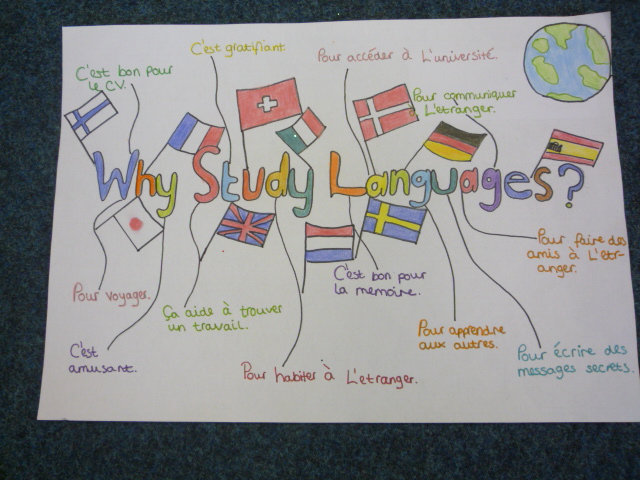 C'est gratifiant
Pour accéder à L'université.
C'est bon pour
le CV.
Pour communiquer
à L'etranger.
Why Study Languages?
Pour faire des
amis à L'etr-
anger.
Pour voyager.
Ça aide à trouver
un travail.
C'est bon pour
la memoire.
Pour apprendre
aux autres.
C'est
amusant.
Pour habiter à L'etranger.
Pour écrire des
messages secrets.